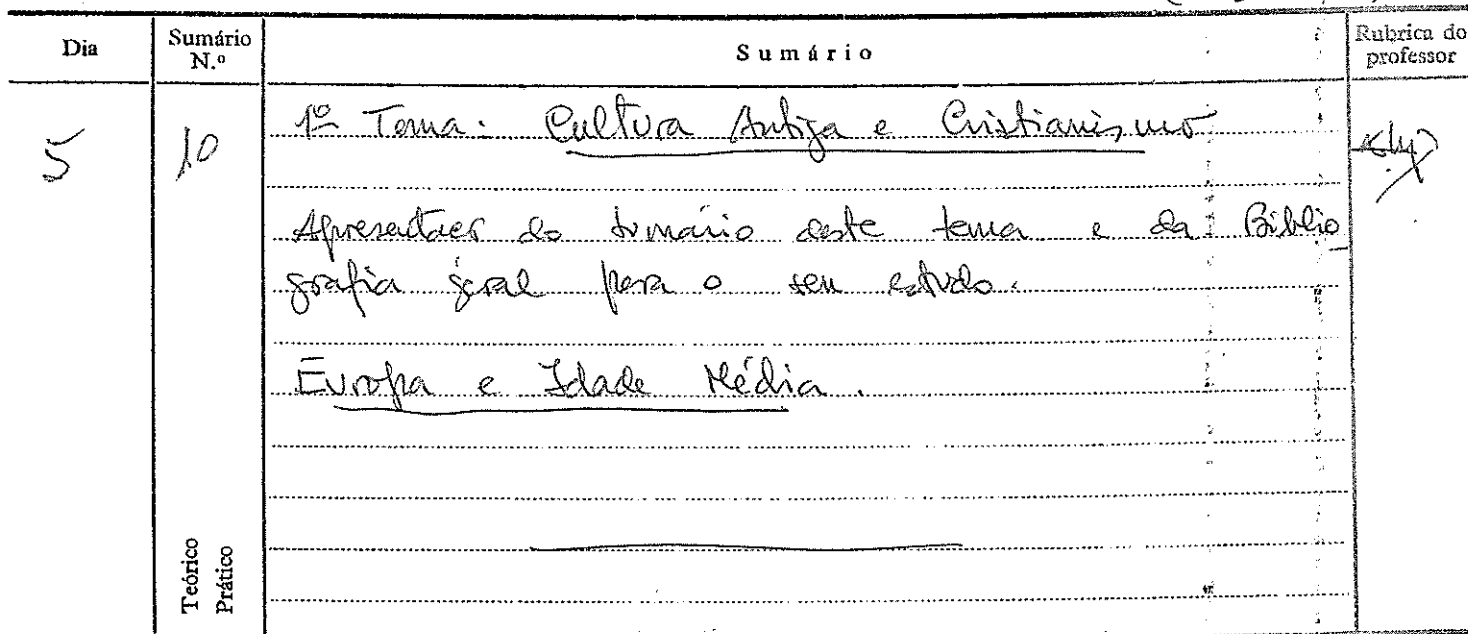 Dia
Sumário N.º
Sumário
Rubrica do professor
5
10
1º Tema: Cultura Antiga e Cristianismo
Apresentação do sumário deste tema e da Biblio
grafia geral para o seu estudo.
Europa e Idade Média.
Teórico
Prático